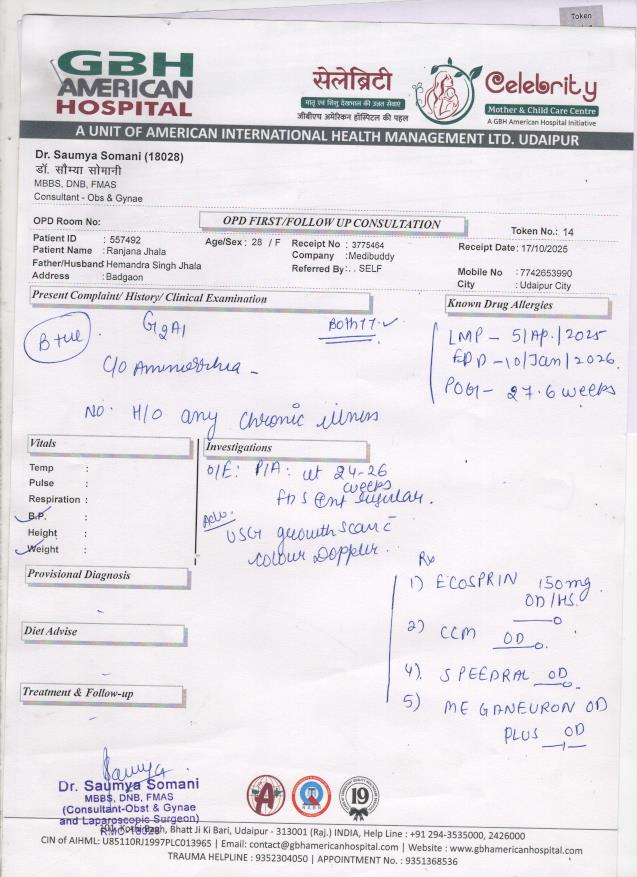 Token
GBH
AMERICAN
HOSPITAL
सेलेब्रिटी
मातृ एवं शिशु देखभाल की उन्नत सेवाएं
जीबीएच अमेरिकन हॉस्पिटल की पहल
Celebrity
Mother & Child Care Centre
A GBH American Hospital Initiative
A UNIT OF AMERICAN INTERNATIONAL HEALTH MANAGEMENT LTD. UDAIPUR
Dr. Saumya Somani (18028)
डॉ. सौम्या सोमानी
MBBS, DNB, FMAS
Consultant - Obs & Gynae
OPD Room No:
OPD FIRST/FOLLOW UP CONSULTATION
Token No.: 14
Patient ID : 557492
Age/Sex : 28 / F
Receipt No : 3775464
Receipt Date: 17/10/2025
Patient Name : Ranjana Jhala
Company : Medibuddy
Father/Husband Hemandra Singh Jhala
Referred By: . . SELF
Mobile No : 7742653990
Address : Badgaon
City : Udaipur City
Present Complaint/ History/ Clinical Examination
Known Drug Allergies
B+ve
G2A1
Both TT ✓
LMP - 5/Ap./2025
EDD - 10/Jan/2026.
POG - 27.6 weeks
C/O Ammorrhea -
No. H/O any chronic illness
Vitals
Investigations
Temp :
Pulse :
Respiration :
B.P. :
Height :
Weight :
O/E: P/A: ut 24-26
weeks
regular.
Adv.
USG growth scan c̄
colour Doppler.
Provisional Diagnosis
Diet Advise
Treatment & Follow-up
Rx
1) ECOSPRIN 150mg
OD/HS.
2) CCM OD
4). SPEEDRAL OD
5) MEGANEURON OD
PLUS OD
Saumya
Dr. Saumya Somani
MBBS, DNB, FMAS
(Consultant-Obst & Gynae
and Laparoscopic Surgeon)
RMC 18028
101, Kothi Bagh, Bhatt Ji Ki Bari, Udaipur - 313001 (Raj.) INDIA, Help Line : +91 294-3535000, 2426000
CIN of AIHML: U85110RJ1997PLC013965 | Email: contact@gbhamericanhospital.com | Website : www.gbhamericanhospital.com
TRAUMA HELPLINE : 9352304050 | APPOINTMENT No. : 9351368536